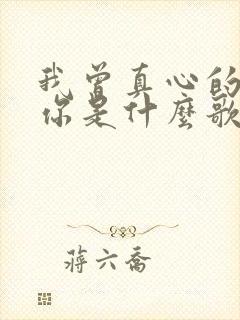 我曾真心的
你是什麼歌
蔣六喬